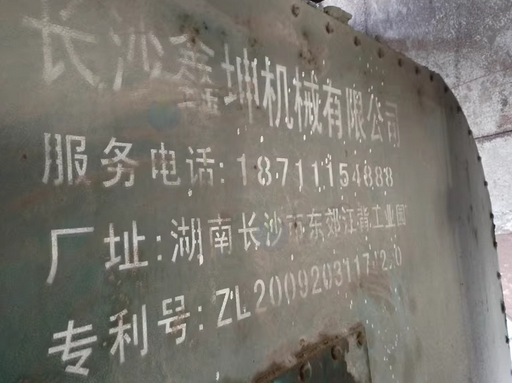 长沙鑫坤机械有限公司
服务电话:18711154888
厂址:湖南长沙市东郊江背工业园
专利号:ZL2009203117 2.0